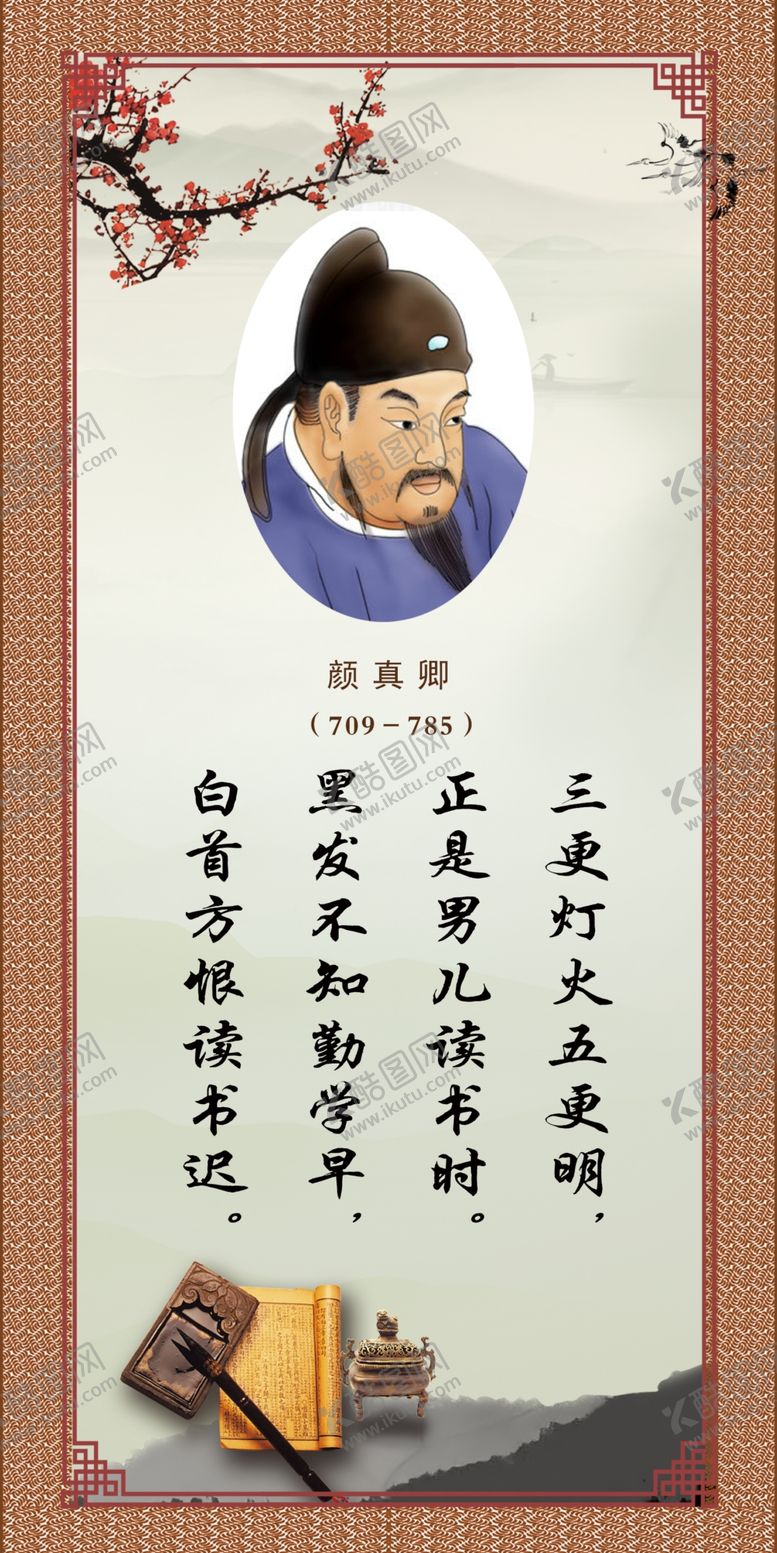 颜真卿
（709－785）
三更灯火五更明，
正是男儿读书时。
黑发不知勤学早，
白首方恨读书迟。
酷图网
www.ikutu.com